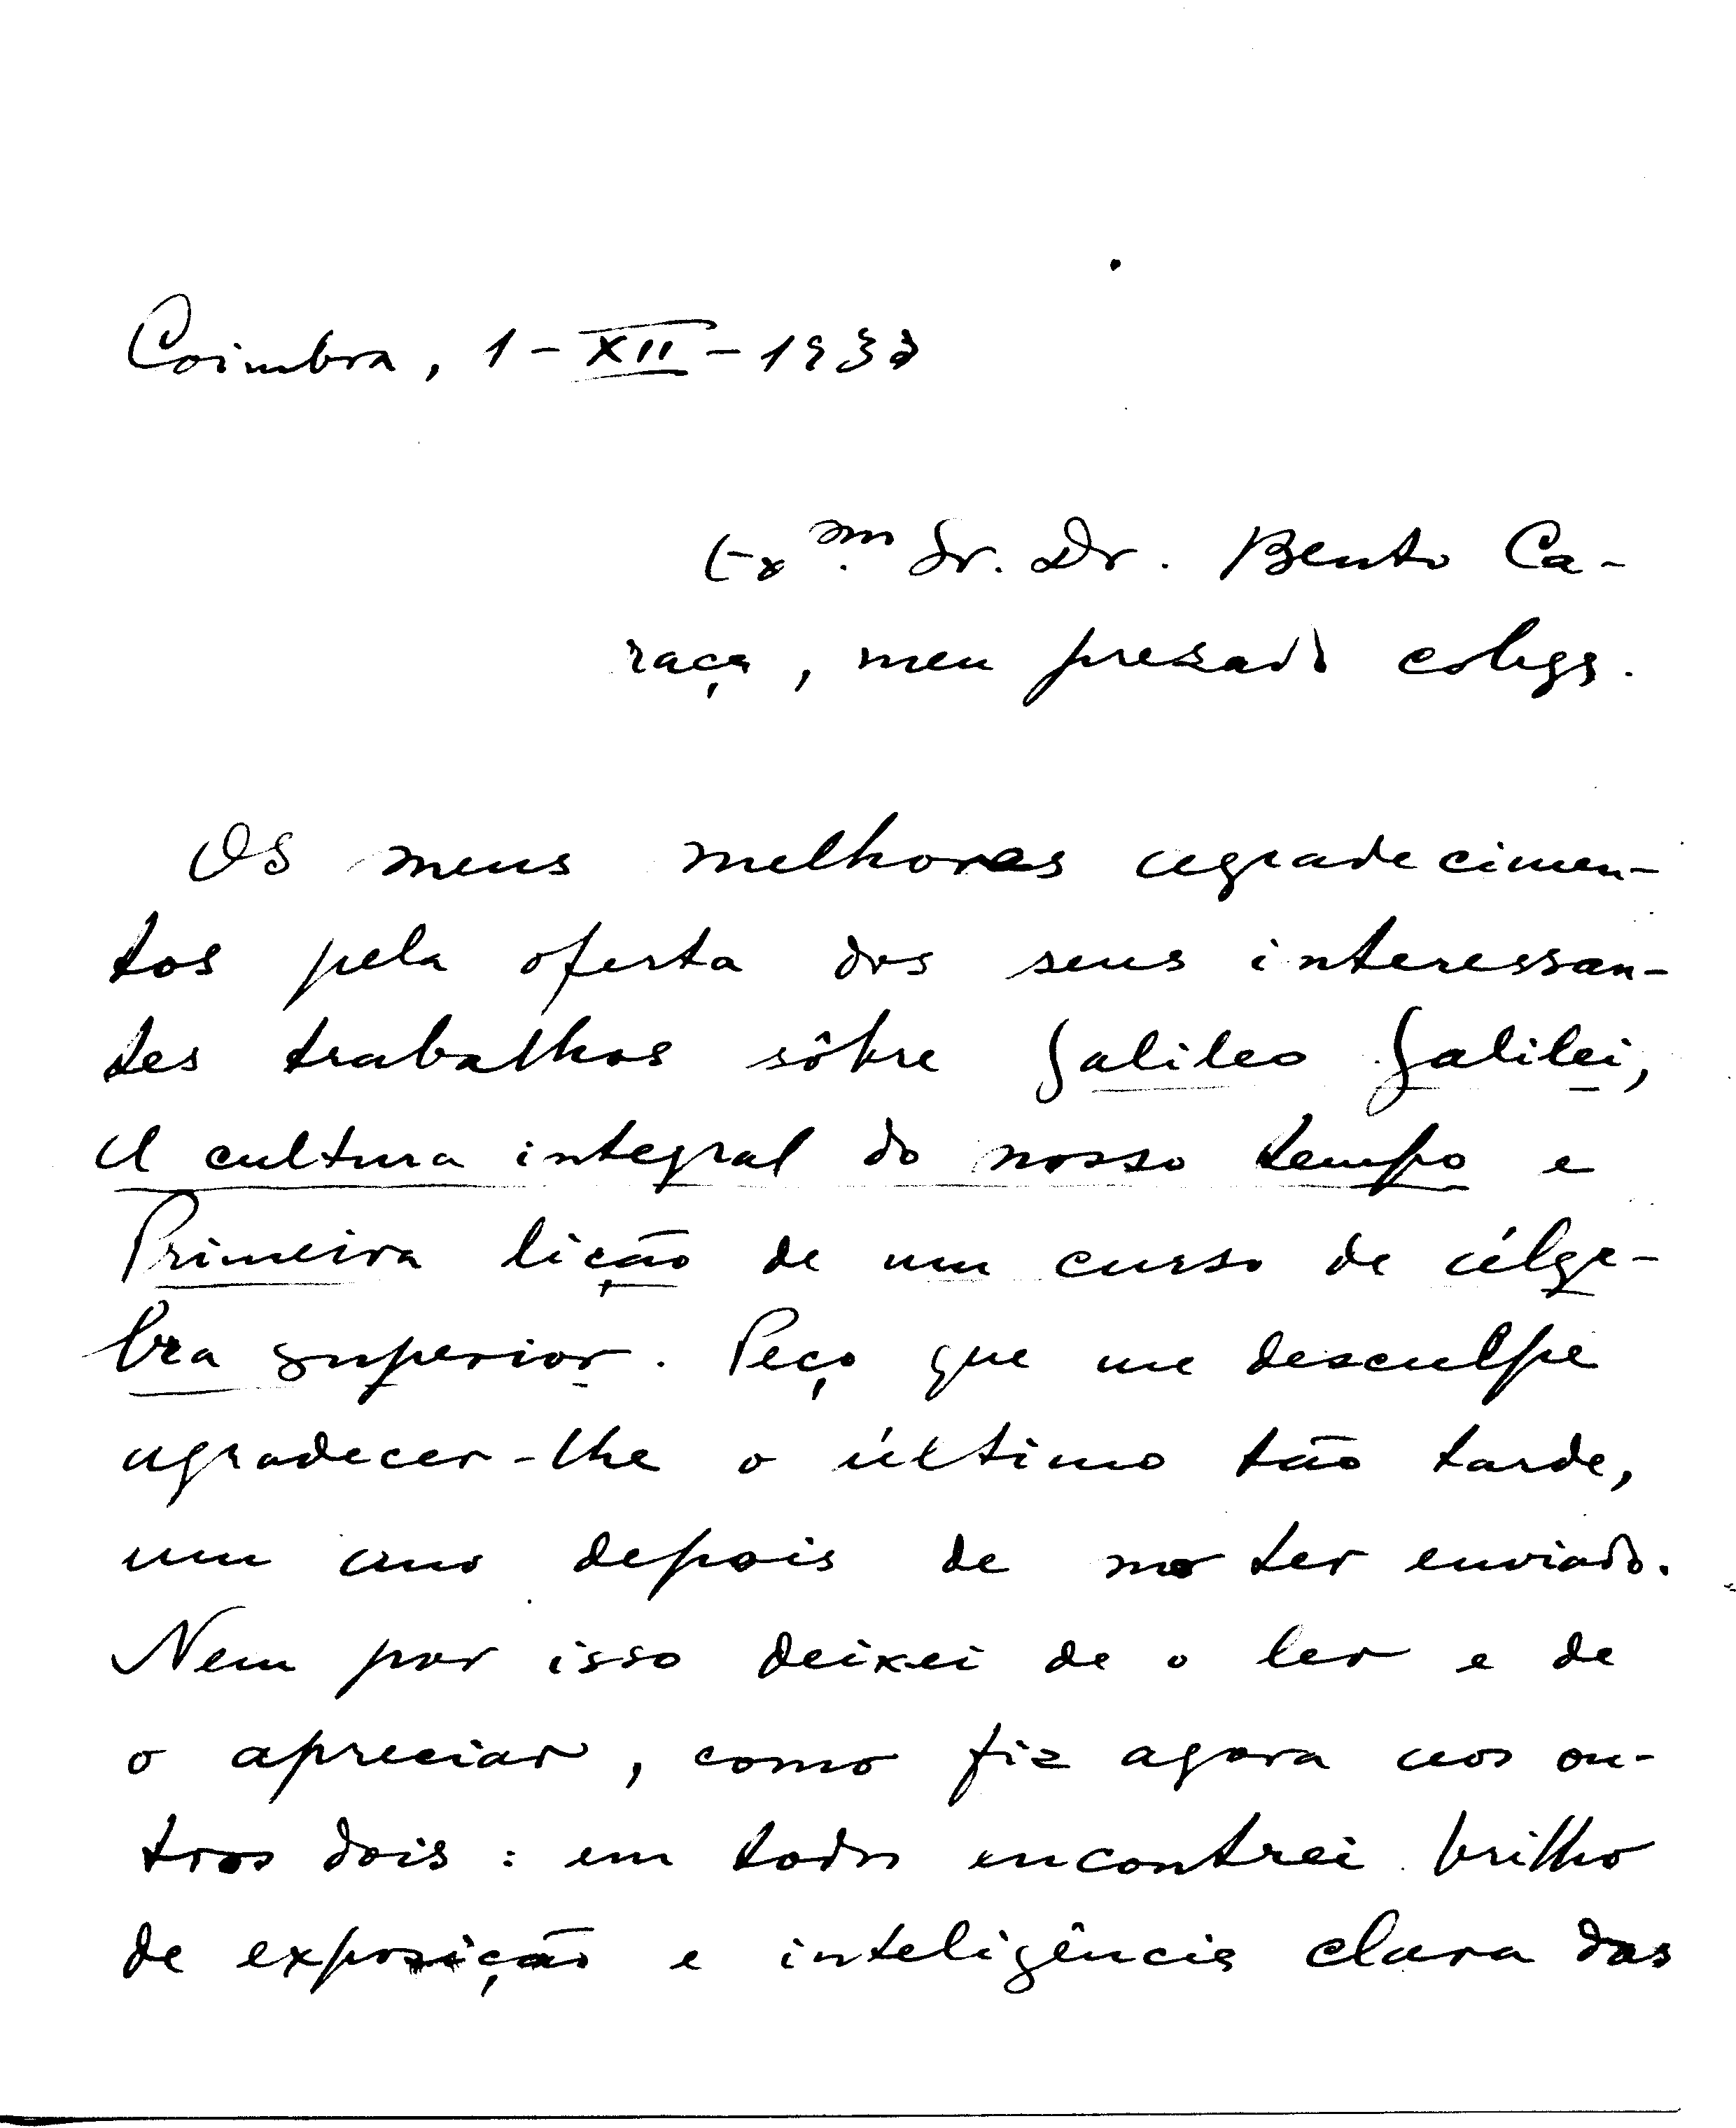 Coimbra, 1-XII-193
Ex.mo Sr. Dr. Bento Ca-
raça, meu prezado colega.
Os meus melhores agradecimen-
tos pela oferta dos seus interessan-
tes trabalhos sôbre Galileo Galilei,
A cultura integral do nosso tempo e
Primeira lição de um curso de álge-
bra superior. Peço que me desculpe
agradecer-lhe o último tão tarde,
um ano depois de mo ter enviado.
Nem por isso deixei de o ler e de
o apreciar, como fiz agora aos ou-
tros dois: em todos encontrei brilho
de exposição e inteligência clara das